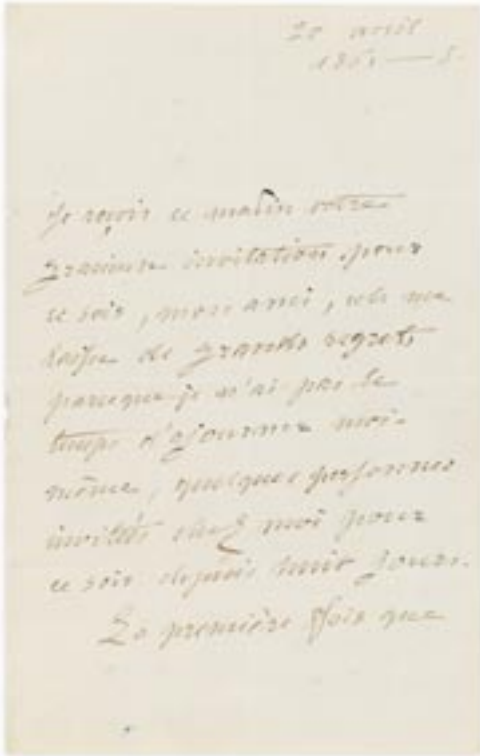 20 avril
186
Je reçois ce matin votre
gracieuse invitation pour
ce soir, mon ami, cela me
laisse de grands regrets
parceque je n'ai pas le
temps d'ajourner moi-
même, quelques personnes
invitées chez moi pour
ce soir depuis huit jours.
La première fois que